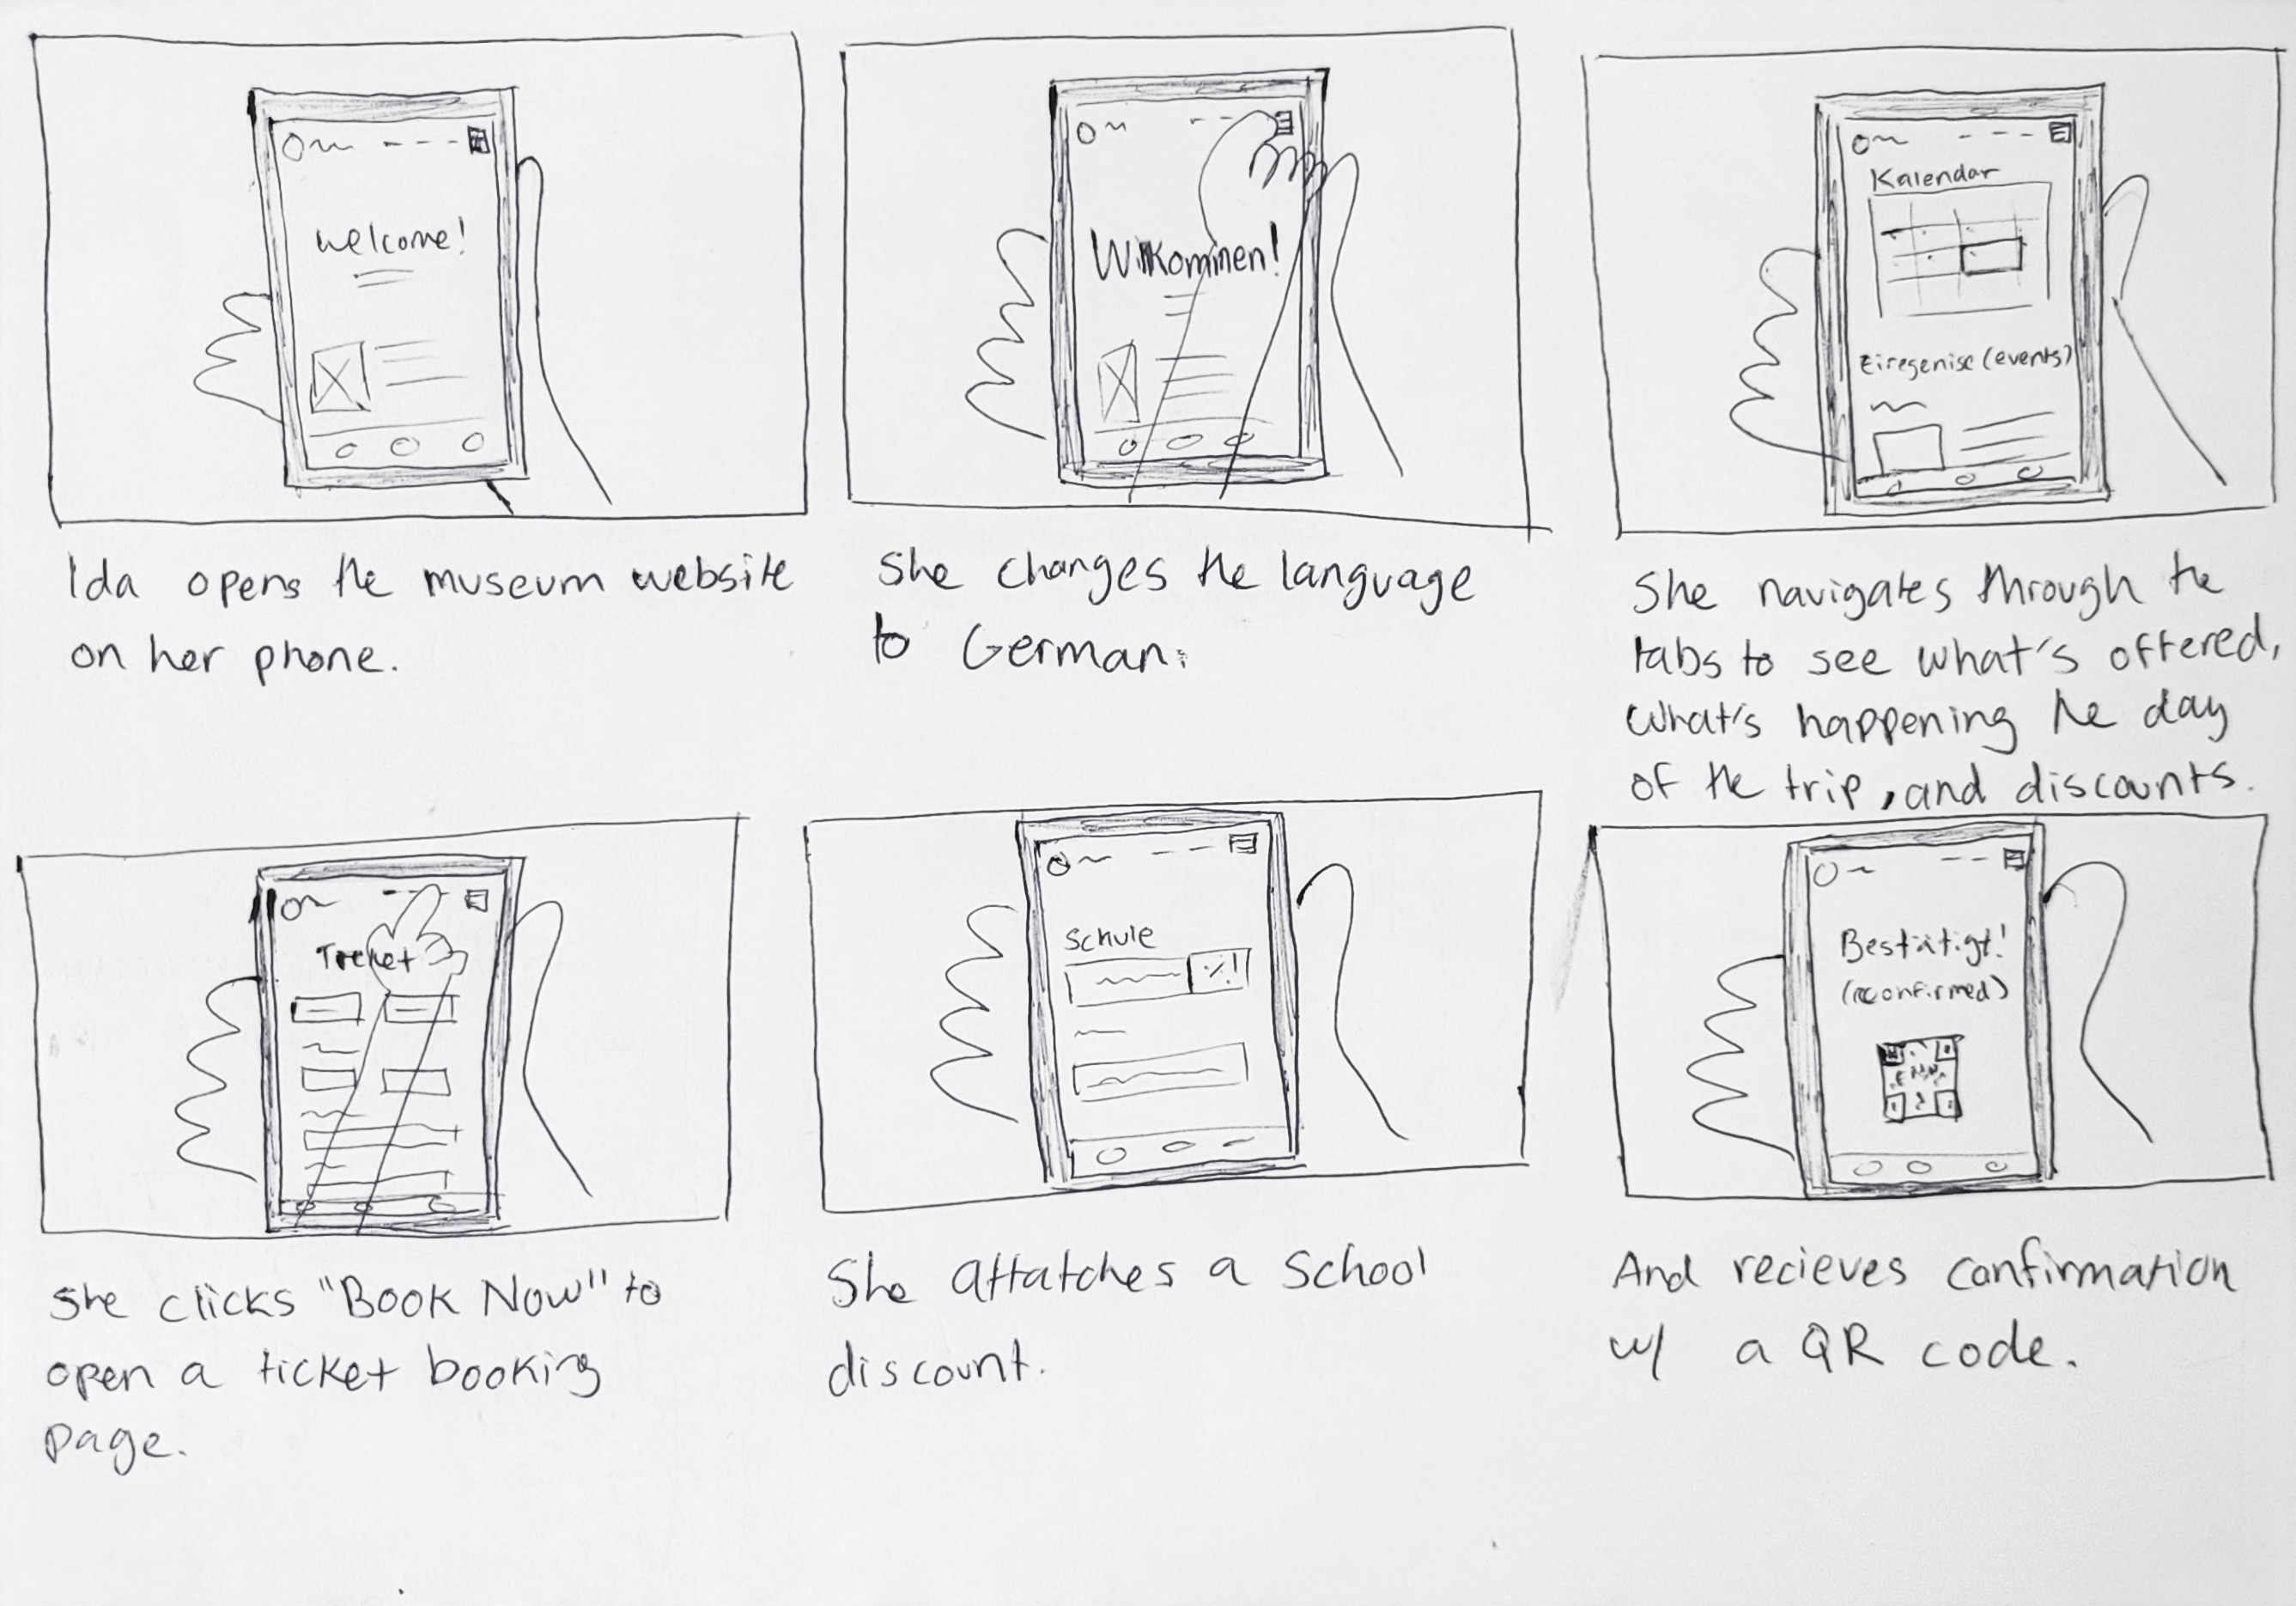 Welcome!
Ida opens the museum website
on her phone.
Wilkommen!
She changes the language
to German.
Kalendar
Eiregenise (events)
She navigates through the
tabs to see what's offered,
what's happening the day
of the trip, and discounts.
Ticket
She clicks "Book Now" to
open a ticket booking
page.
Schule
%!
She attatches a School
discount.
Bestätigt!
(reconfirmed)
And recieves confirmation
w/ a QR code.